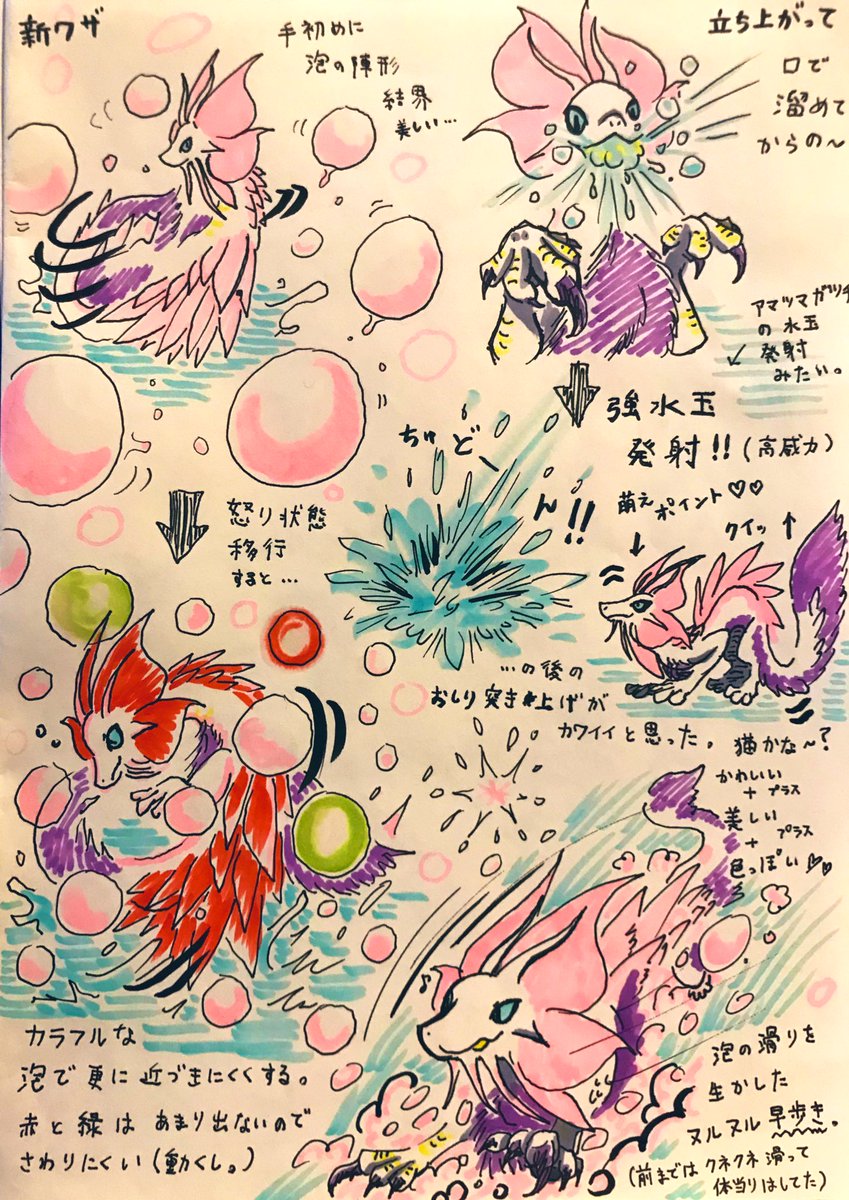 新ワザ
手初めに
泡の陣形
結界
美しい…
立ち上がって
口で
溜めて
からの～
アマツマガツチ
の水玉
発射
みたい。
強水玉
発射!!(高威力)
ちゅどーん!!
萌え
ポイント♡♡
クイッ↑
怒り状態
移行
すると…
…の後の
おしり突き上げが
カワイイと思った。猫かな～?
かわいい
+プラス
美しい
+プラス
色っぽい♡♡
カラフルな
泡で更に近づきにくくする。
赤と緑はあまり出ないので
さわりにくい(動くし。)
♪
泡の滑りを
生かした
ヌルヌル早歩き。
(前まではクネクネ滑って
体当りはしてた)